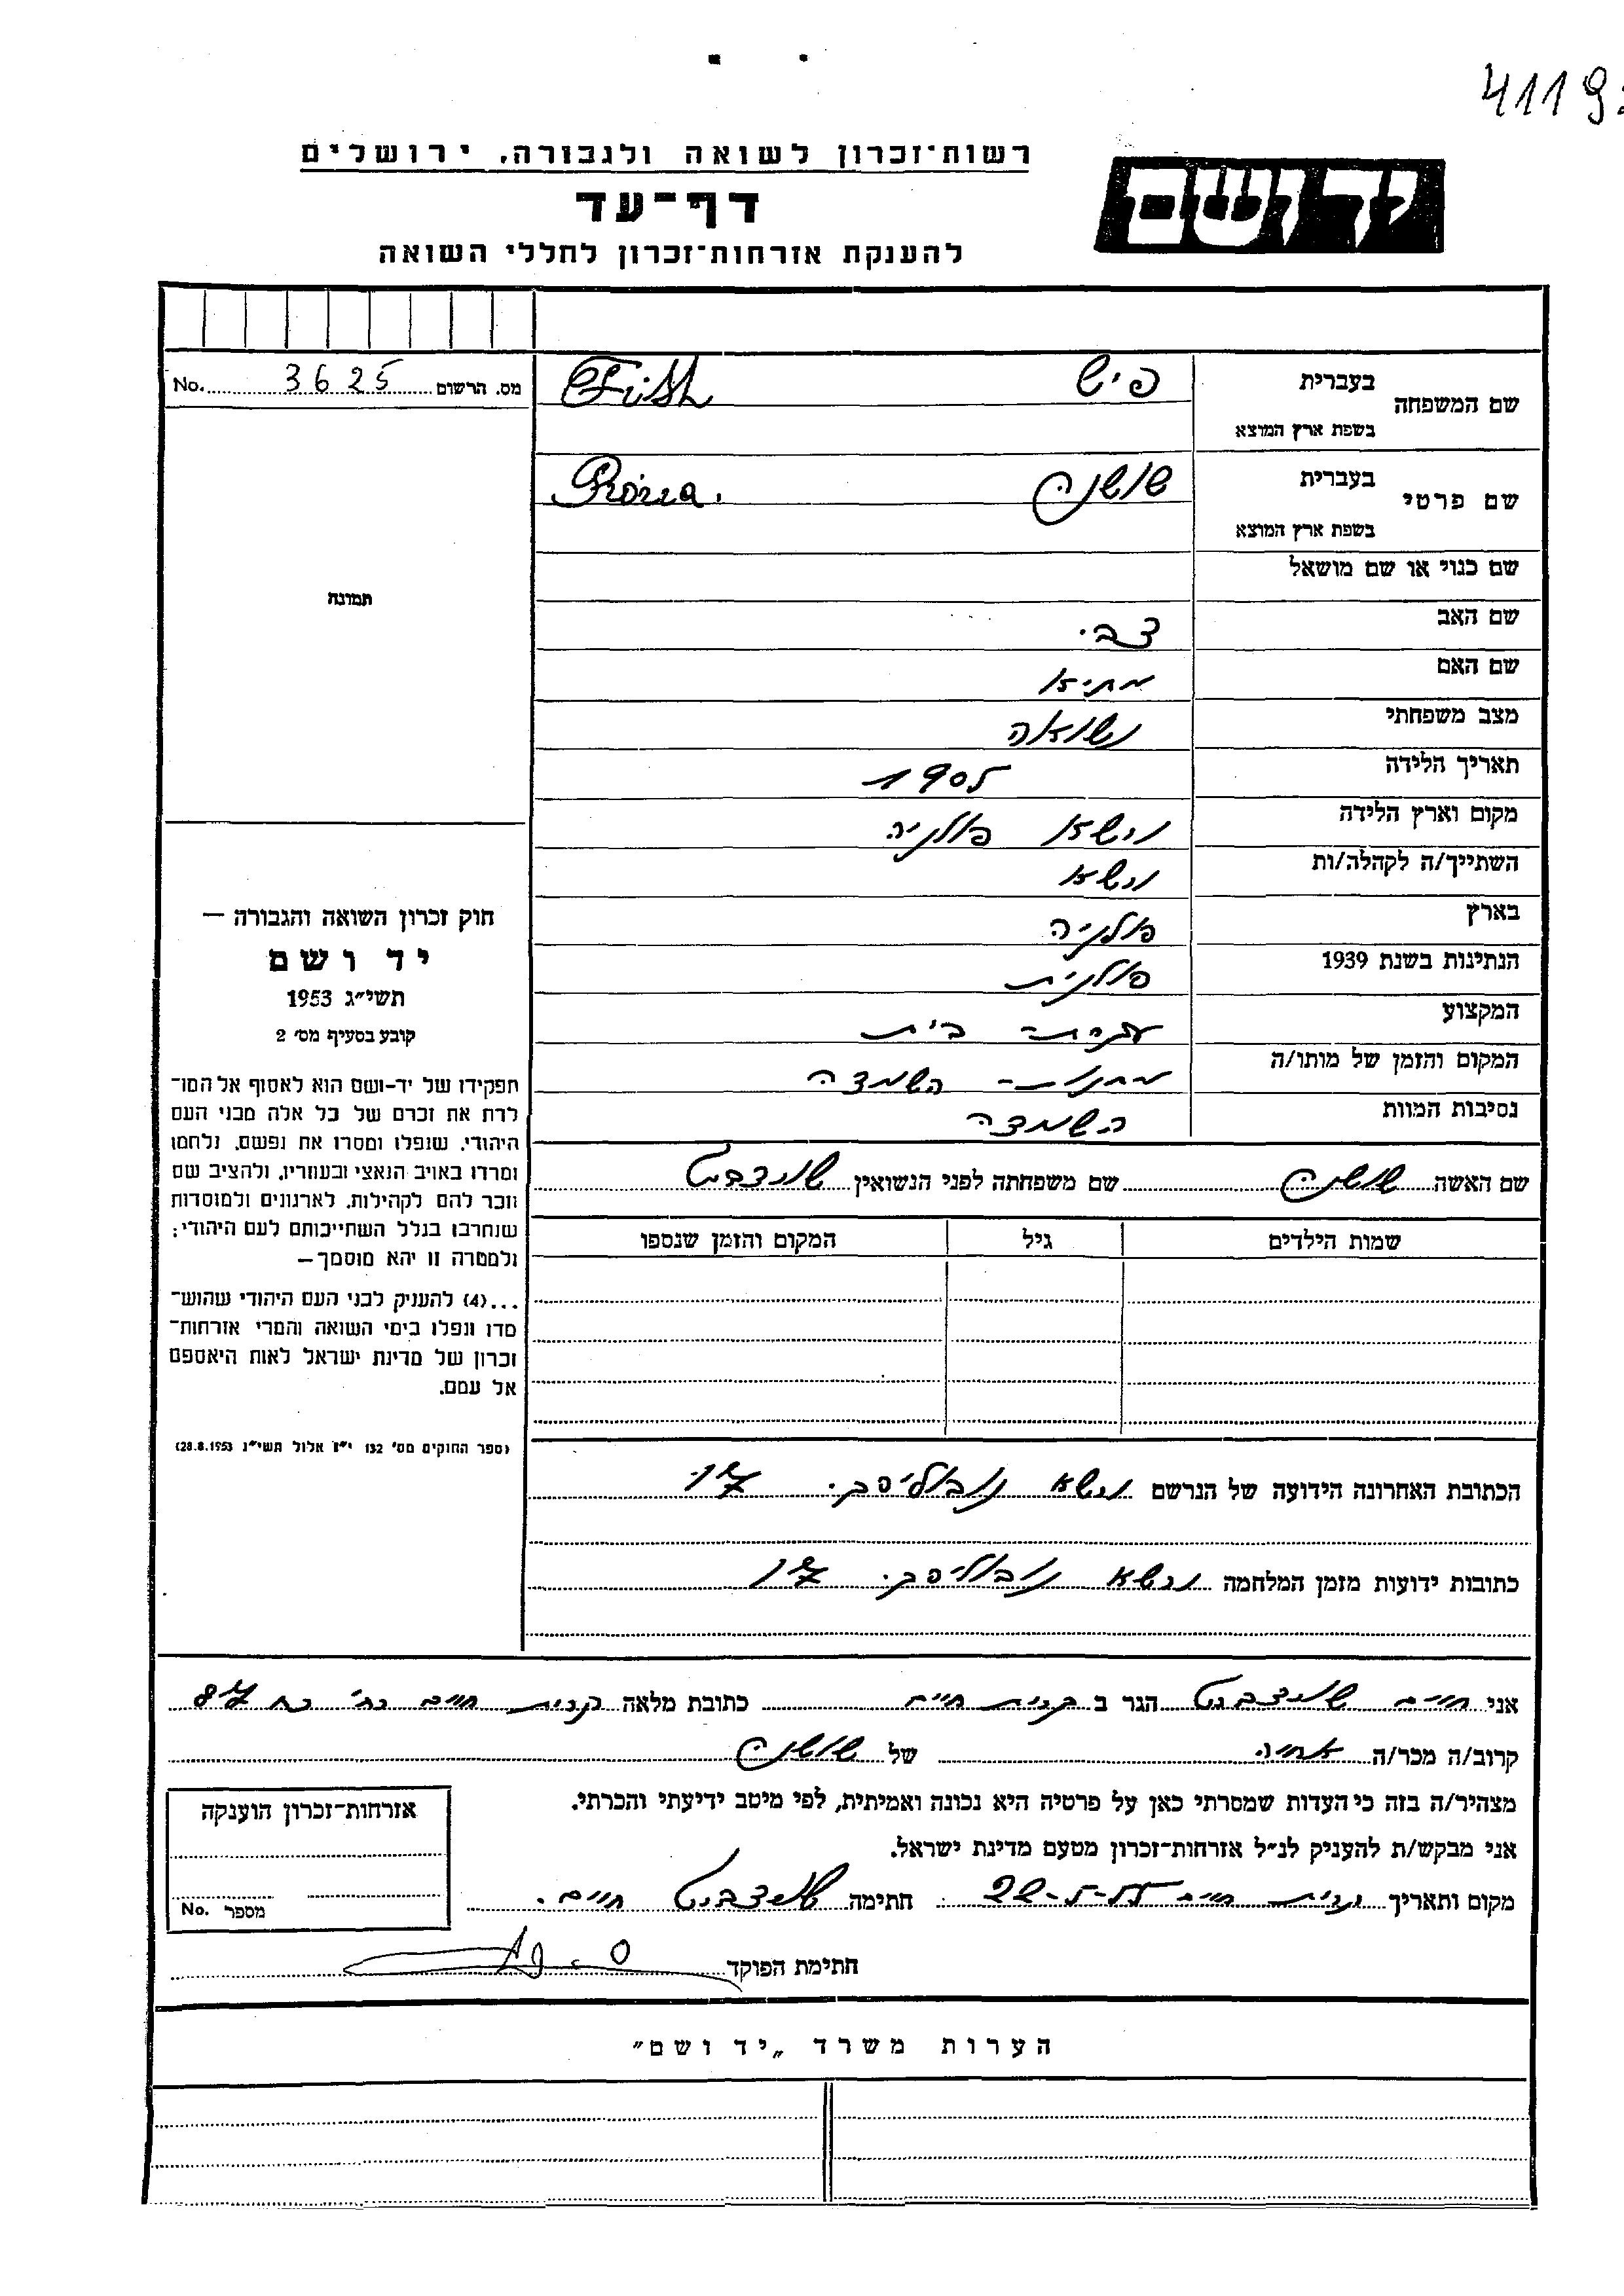 41193
רשות־זכרון לשואה ולגבורה, ירושלים
יד ושם
דף־עד
להענקת אזרחות־זכרון לחללי השואה
מס. הרשום 3625 No.
שם המשפחה בעברית פיש Fish
בשפת ארץ המוצא
שם פרטי בעברית שושנה Rózia.
בשפת ארץ המוצא
שם כנוי או שם מושאל
תמונה
שם האב צבי
שם האם
מצב משפחתי נשואה
תאריך הלידה 1905
מקום וארץ הלידה ורשא פולניה
השתייך/ה לקהלה/ות ורשא
בארץ פולניה
הנתינות בשנת 1939 פולנית
המקצוע עקרת בית
המקום והזמן של מותו/ה מחנות השמדה
נסיבות המוות השמדה
שם האשה שושנה שם משפחתה לפני הנשואין
שמות הילדים גיל המקום והזמן שנספו
חוק זכרון השואה והגבורה —
יד ושם
תשי״ג 1953
קובע בסעיף מס׳ 2
תפקידו של יד-ושם הוא לאסוף אל המו־
לדת את זכרם של כל אלה מבני העם
היהודי, שנפלו ומסרו את נפשם, נלחמו
ומרדו באויב הנאצי ובעוזריו, ולהציב שם
וזכר להם לקהילות, לארגונים ולמוסדות
שנחרבו בגלל השתייכותם לעם היהודי;
ולמטרה זו יהא מוסמך—
...(4) להעניק לבני העם היהודי שהוש־
מדו ונפלו בימי השואה והמרי אזרחות־
זכרון של מדינת ישראל לאות היאספם
אל עמם.
(ספר החוקים מס׳ 132 י״ז אלול תשי״ג 28.8.1953)
הכתובת האחרונה הידועה של הנרשם ורשא נובוליפקי
כתובות ידועות מזמן המלחמה ורשא נובוליפקי
אני חיים הגר ב קרית חיים כתובת מלאה קרית חיים
קרוב/ה מכר/ה אחיה של שושנה
מצהיר/ה בזה כי העדות שמסרתי כאן על פרטיה היא נכונה ואמיתית, לפי מיטב ידיעתי והכרתי.
אני מבקש/ת להעניק לנ״ל אזרחות־זכרון מטעם מדינת ישראל.
מקום ותאריך קרית חיים 22-5-55 חתימה חיים.
אזרחות־זכרון הוענקה
מספר No.
חתימת הפוקד
הערות משרד „יד ושם״